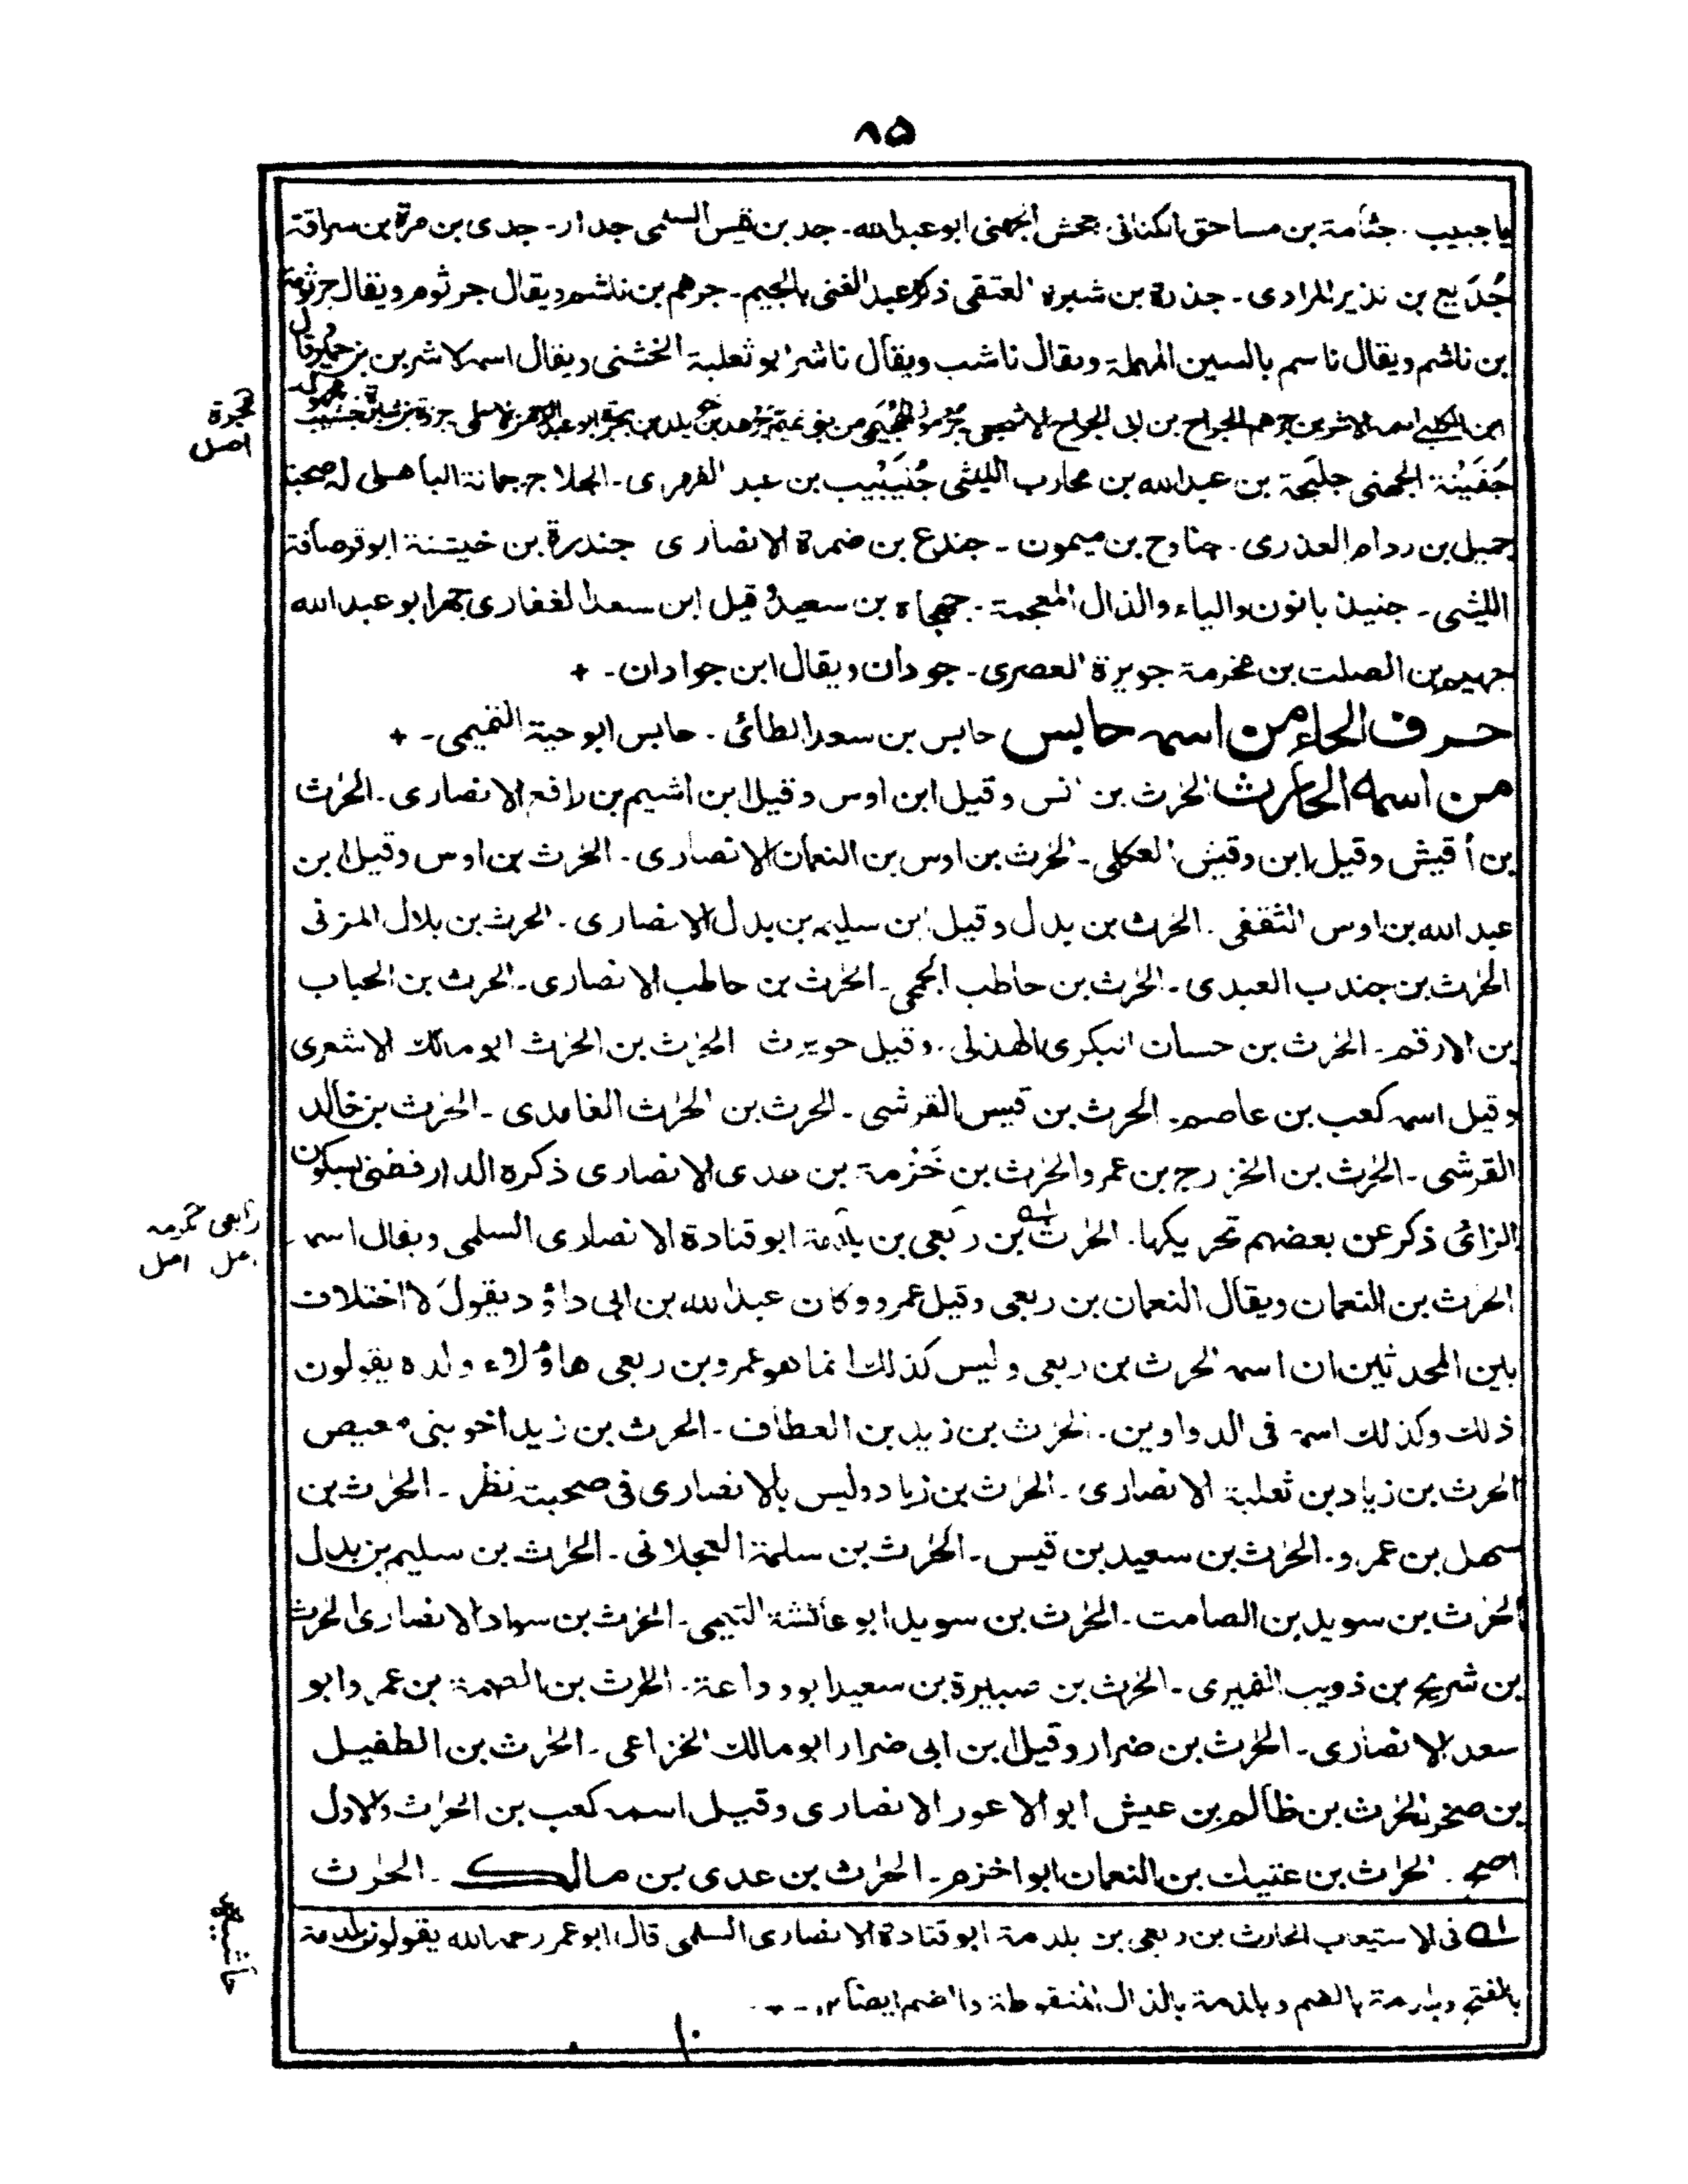 ۸۵
يا جبيب . جثامة بن مساحق الكنانى . جحش الجهنى ابو عبدالله ۔ جد بن قيس السلمى جدار ۔ جدى بن مرة بن سراقة
جُدَيع بن نذير المرادى ۔ جذرة بن شبرة العتقى ذكره عبد الغنى بالجيم ۔ جرهم بن ناشم ويقال جرثوم ويقال جرثومة
بن ناشم ويقال ناسم بالسين المهملة ويقال ناشب ويقال ناشر ابو ثعلبة الخشنى ويقال اسمه لاشر بن
ابن الكلبى اسمه الاشر بن جرهم الجراح بن ابى الجراح الاشجعى جرموز الهجيمى من بنى تميم جرهد بن خويلد بن بجرة ابو عبد الرحمن الاسلمى
جَفَيْنة الجهنى جليحة بن عبدالله بن محارب الليثى جُنَيْبيب بن عبد الفهرى ۔ الجلاح جمانة الباهلى له صحبة
جميل بن ردام العذرى . جناوح بن ميمون ۔ جندع بن ضمرة الانصارى جندرة بن خيشنة ابو قرصافة
الليثى ۔ جنيذ بانون والياء والذال المعجمة . جهجاه بن سعيد وقيل ابن سعد الغفارى جهر ابو عبدالله
جهيم بن الصلت بن مخرمة جويرة العصرى ۔ جودان ويقال ابن جوادان ۔ +
حرف الحاء من اسمه حابس حابس بن سعد الطائى . حابس ابو حية التميمى ۔ +
من اسمه الحارث الحٰرث بن انس وقيل ابن اوس وقيل ابن اشيم بن رافع الانصارى ۔ الحٰرث
بن أقيش وقيل ابن وقيش العكلى ۔ الحٰرث بن اوس بن النعمان الانصارى ۔ الحٰرث بن اوس وقيل ابن
عبد الله بن اوس الثقفى . الحٰرث بن بدل وقيل ابن سليم بن بدل الانصارى . الحرث بن بلال المزنى
الحٰرث بن جندب العبدى ۔ الحٰرث بن حاطب الجمحى ۔ الحٰرث بن حاطب الانصارى ۔ الحرث بن الحباب
بن الارقم ۔ الحٰرث بن حسان البكرى الهذلى . وقيل حويرث الحٰرث بن الحٰرث ابو مالك الاشعرى
وقيل اسمه كعب بن عاصم ۔ الحرث بن قيس القرشى ۔ الحرث بن الحٰرث الغامدى ۔ الحٰرث بن خالد
القرشى ۔ الحٰرث بن الخزرج بن عمرو الحٰرث بن خَزمة بن عدى الانصارى ذكره الدارقطنى بسكون
الزائى ذكر عن بعضهم تحريكها . الحٰرث بن ربعى بن بلدمة ابو قتادة الانصارى السلمى ويقال اسمه
الحٰرث بن النعمان ويقال النعمان بن ربعى وقيل عمرو وكان عبدالله بن ابى داؤد يقول لا اختلاف
بين المحدثين ان اسمه الحرث بن ربعى وليس كذلك انما هو عمرو بن ربعى هاؤلاء ولده يقولون
ذلك وكذلك اسمه فى الدواوين . الحٰرث بن زيد بن العطاف ۔ الحرث بن زيد اخو بنى معيص
الحرث بن زياد بن ثعلبة الانصارى ۔ الحٰرث بن زياد وليس بالانصارى فى صحبته نظر ۔ الحٰرث بن
سهل بن عمرو . الحٰرث بن سعيد بن قيس ۔ الحٰرث بن سلمة العجلانى ۔ الحٰرث بن سليم بن بدل
الحٰرث بن سويد بن الصامت ۔ الحٰرث بن سويد ابو عائشة التيمى ۔ الحٰرث بن سهاد الانصارى الحرث
بن شريح بن ذويب النميرى ۔ الحٰرث بن صبيرة بن سعيد ابو وداعة . الحٰرث بن الصمة بن عمرو ابو
سعد الانصارى ۔ الحٰرث بن ضرار وقيل ابن ابى ضرار ابو مالك الخزاعى ۔ الحٰرث بن الطفيل
بن صخر الحٰرث بن ظالم بن عيش ابو الاعور الانصارى وقيل اسمه كعب بن الحٰرث والاول
اصح . الحٰرث بن عتيك بن النعمان ابو اخزم ۔ الحٰرث بن عدى بن مالك ۔ الحٰرث
فى الاستيعاب الحارث بن ربعى بن بلدمة ابو قتادة الانصارى السلمى قال ابو عمر رحمه الله يقولون بلدمة
بالفتح وبلدمة بالضم وبلذمة بالذال المنقوطة والضم ايضاً ۱۲ ۔
۱۰
اصل
اصل
حاشيه